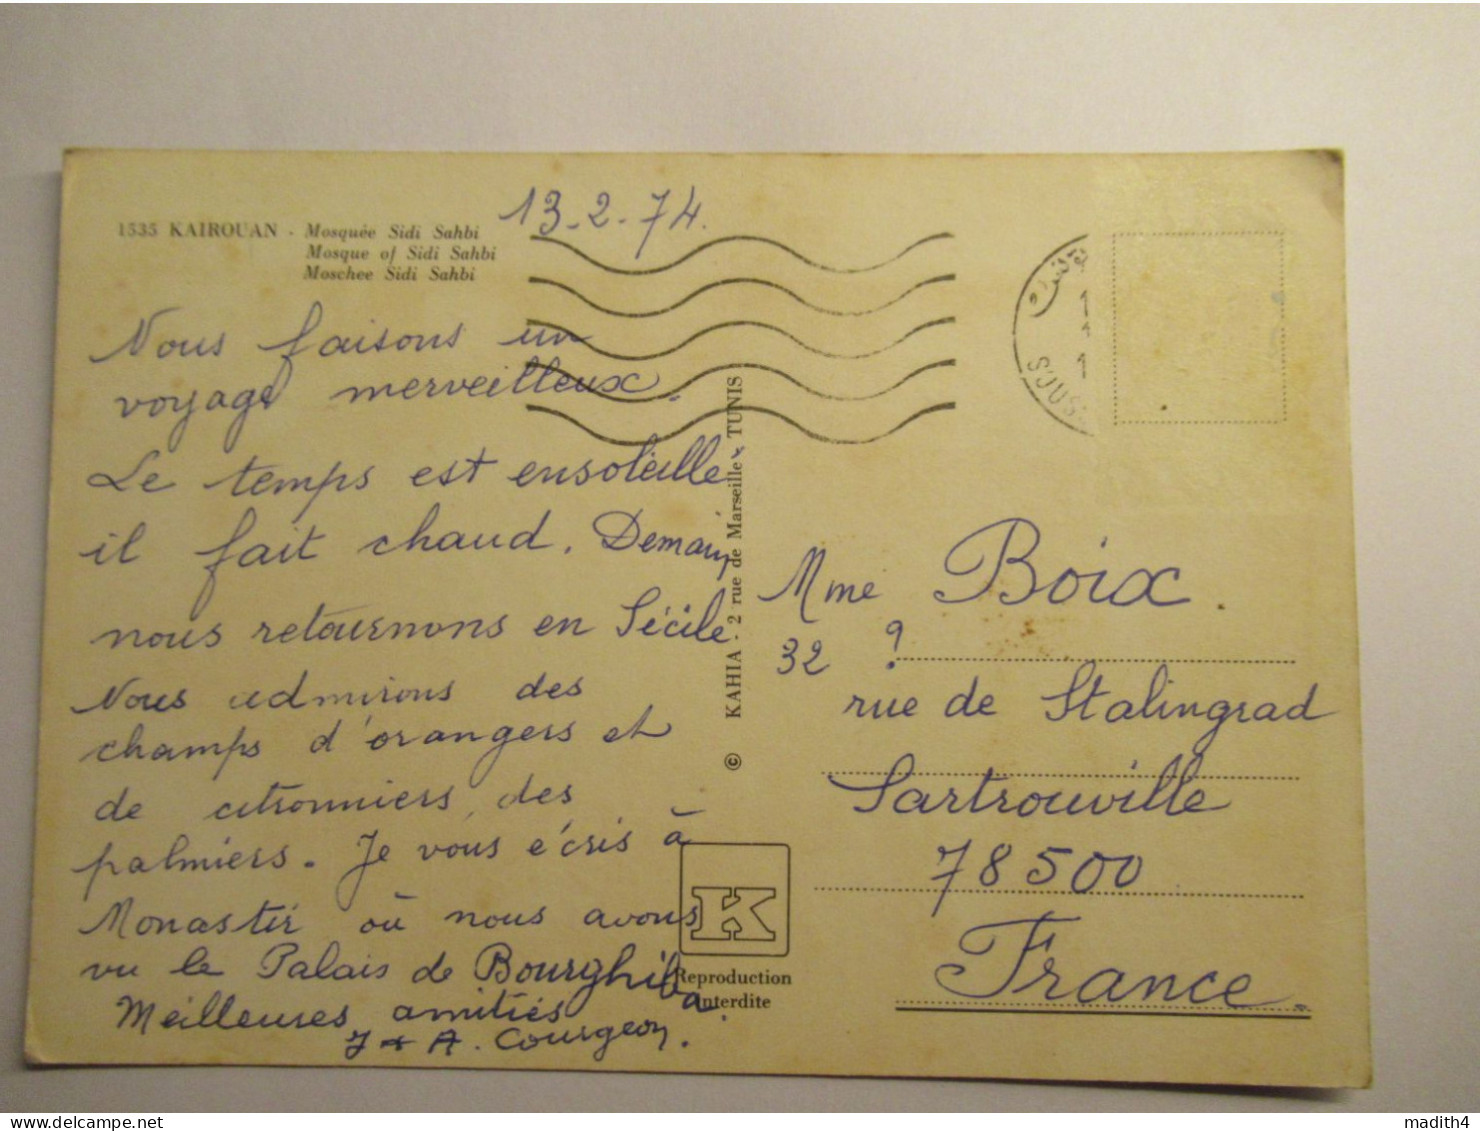 13-2-74.
1535 KAIROUAN - Mosquée Sidi Sahbi
Mosque of Sidi Sahbi
Moschee Sidi Sahbi
Nous faisons un
voyage merveilleux.
Le temps est ensoleillé
il fait chaud. Demain
nous retournons en Sicile
Nous admirons des
champs d'orangers et
de citronniers, des
palmiers. Je vous écris à
Monastir où nous avons
vu le Palais de Bourghiba.
Meilleures amitiés
J & A. Courgeon.
© KAHIA - 2 rue de Marseille - TUNIS
K
Reproduction
Interdite
Mme Boix.
32 ?
rue de Stalingrad
Sartrouville
78500
France.
madith4